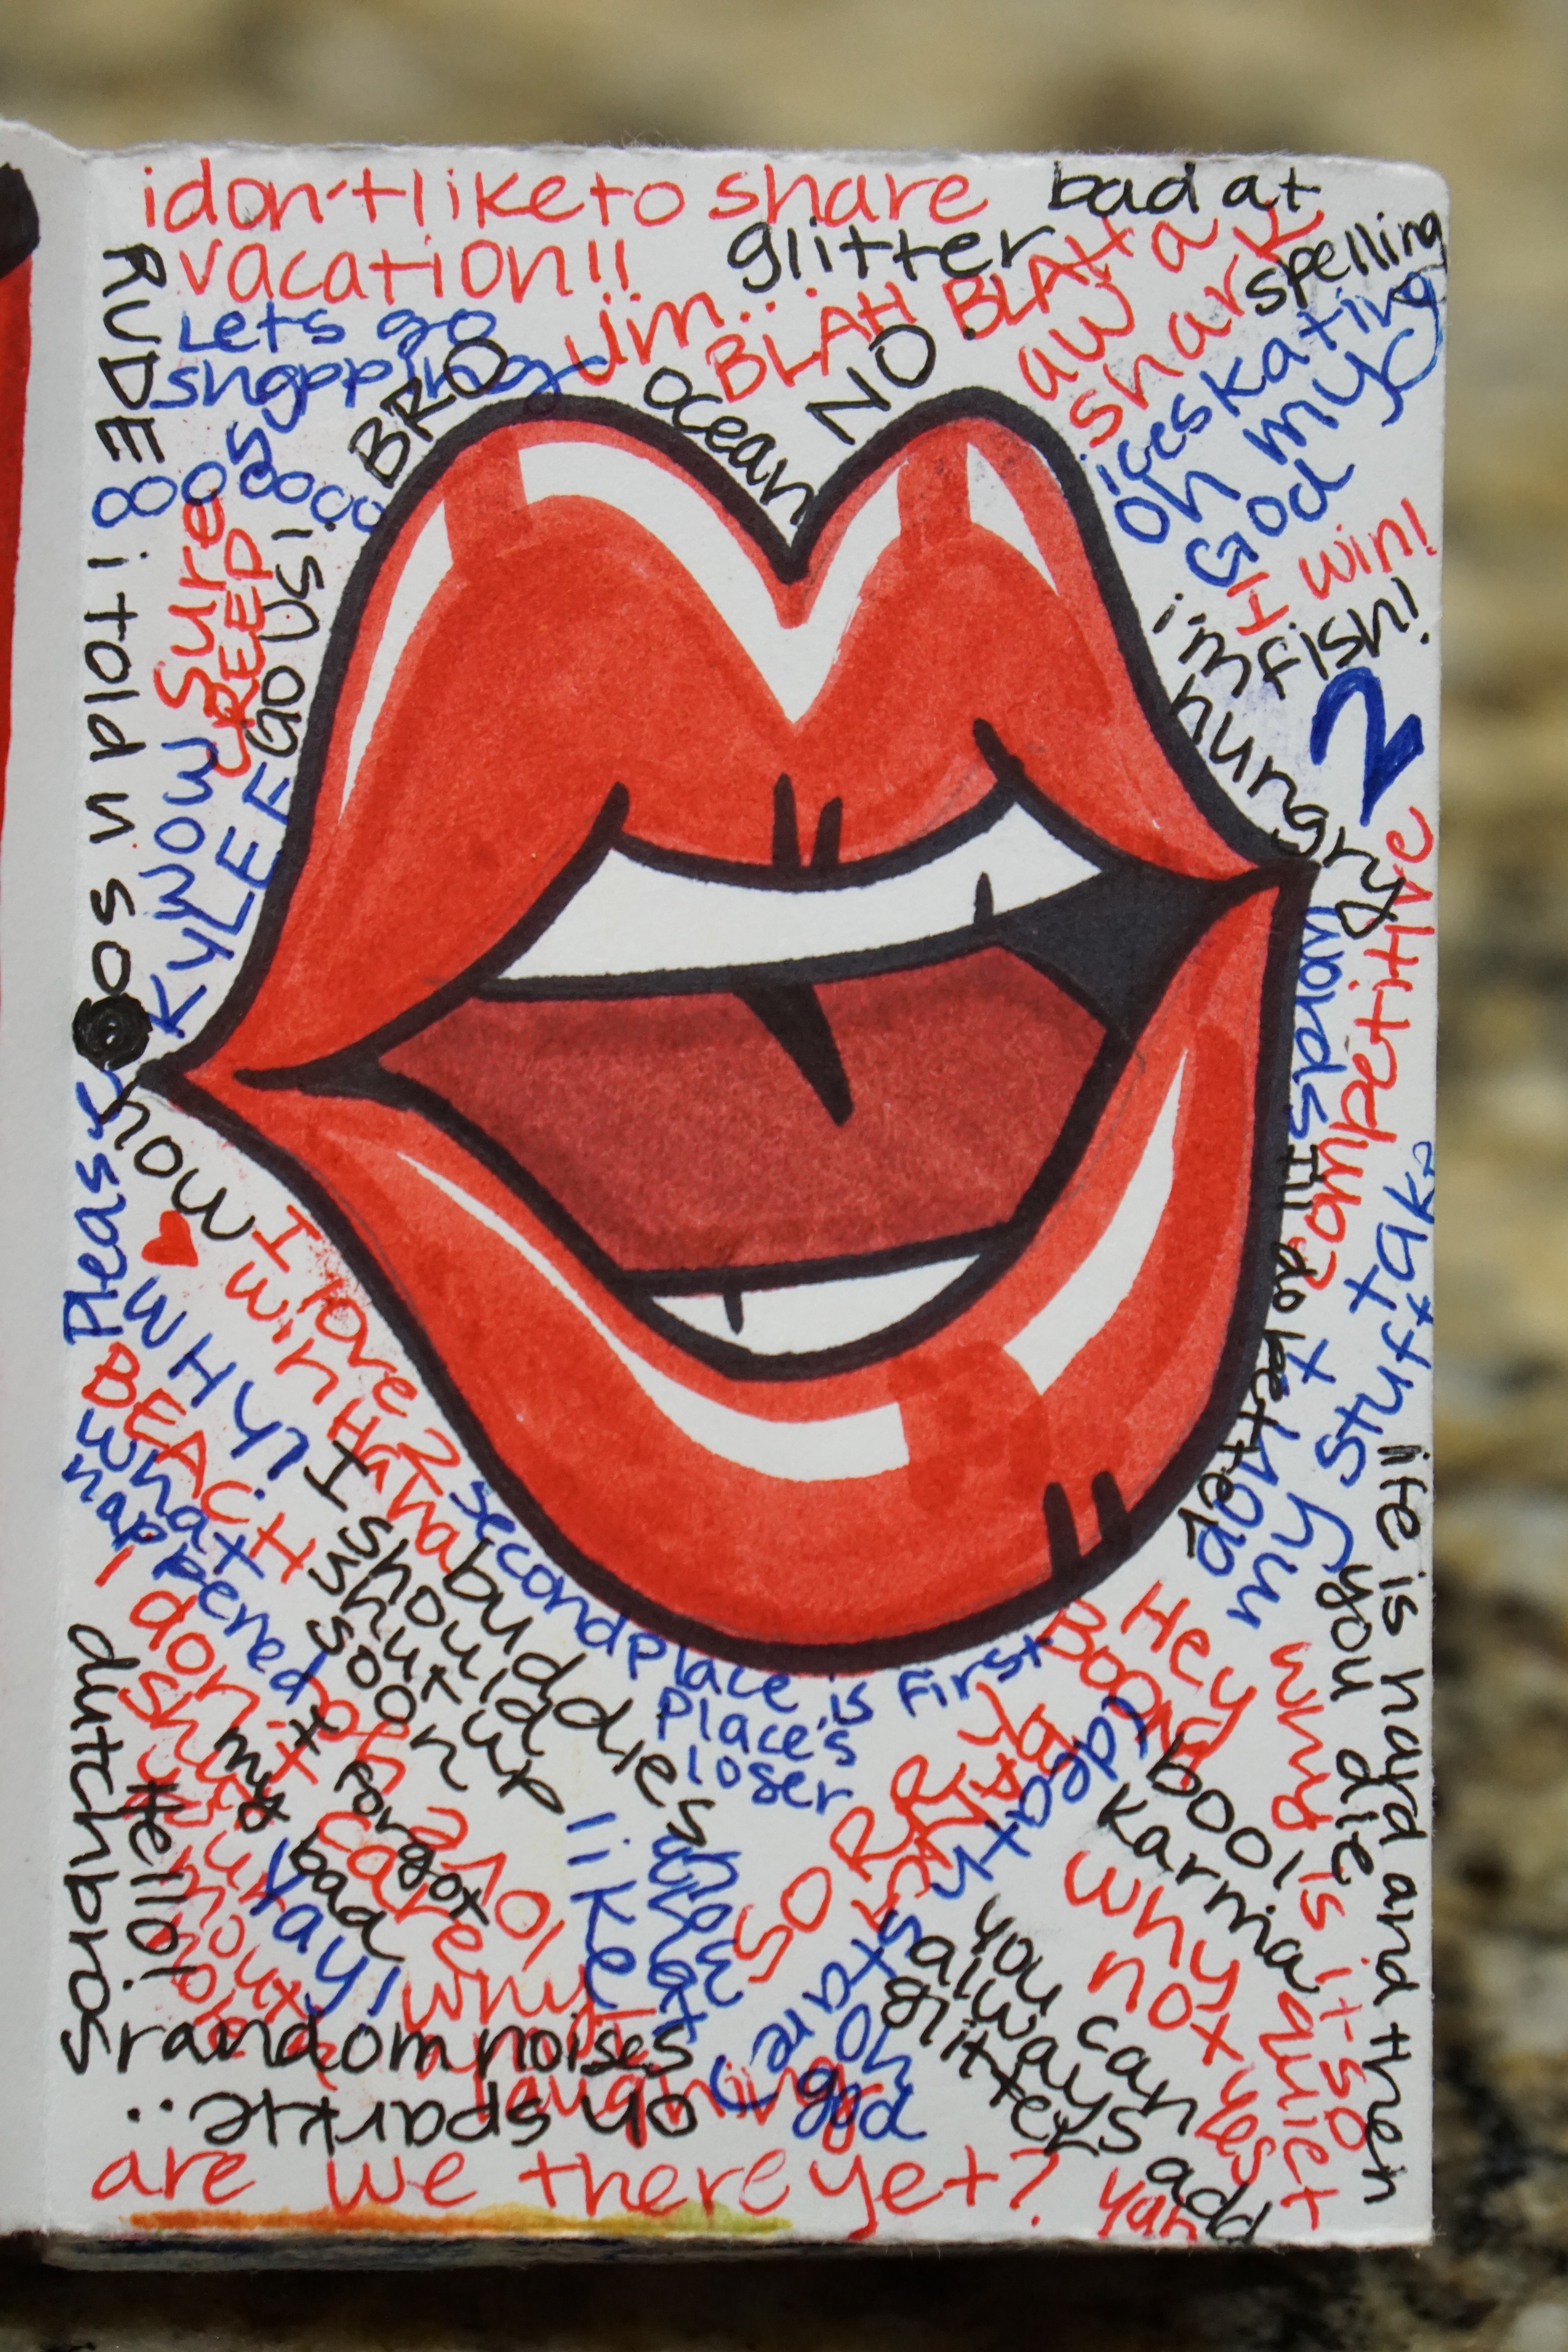 i don't like to share
bad at
spelling
vacation!!
glitter
RUDE
Lets go
shopping
Jim...
BLAH BLAH
aw a
shark
BRO
ocean
NO
ices kating
oh my
God
soooooooo
I win!
fish!
i'm
hungry
2
i told u so
sure
CREEP
GO US!
WOW
KYLEE
competitive
Please
now
I love 2
win
HaHaHa
WHY!
BEACH
what
happened
I should
shut up
soon
buddies
second place is first
place's
loser
I'll do better
don't
my stuff
life is hard and then
you die
I don't
care
duntruhd
Hello!
my
bad
forgot
yay!
lol
like
why
SORRY
BOO
Hey
death
stare
bool
Karma
why
not
yes
why is it so
quiet
you can
always add
glitter
oh
god
random noises
laughing
oh sparkle..
are we there yet?
yah